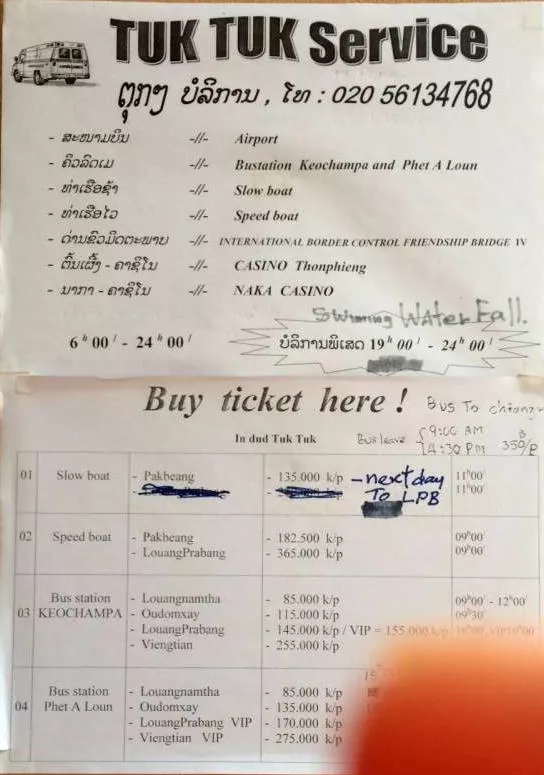 TUK TUK Service
ຕຸກໆ ບໍລິການ , ໂທ : 020 56134768
- ສະໜາມບິນ -//- Airport
- ຄິວລົດເມ -//- Bustation Keochampa and Phet A Loun
- ທ່າເຮືອຊ້າ -//- Slow boat
- ທ່າເຮືອໄວ -//- Speed boat
- ດ່ານຂົວມິດຕະພາບ -//- INTERNATIONAL BORDER CONTROL FRIENDSHIP BRIDGE IV
- ຕົ້ນເຜິ້ງ - ຄາຊິໂນ -//- CASINO Thonphieng
- ນາກາ - ຄາຊິໂນ -//- NAKA CASINO
Swimming Water Fall.
6 ʰ 00 ˡ - 24 ʰ 00 ˡ ບໍລິການພິເສດ 19 ʰ 00 ˡ - 24 ʰ 00 ˡ
Buy ticket here ! Bus To
In dud Tuk Tuk Bus leave 9:00 AM
14:30 PM 350฿/P
01 Slow boat - Pakbeang - 135.000 k/p - next day 11ʰ00ˡ
To LPB 11ʰ00ˡ
02 Speed boat - Pakbeang - 182.500 k/p 09ʰ00ˡ
- LouangPrabang - 365.000 k/p 09ʰ00ˡ
03 Bus station - Louangnamtha - 85.000 k/p 09ʰ00ˡ - 12ʰ00ˡ
KEOCHAMPA - Oudomxay - 115.000 k/p 09ʰ30ˡ
- LouangPrabang - 145.000 k/p / VIP = 155.000 k/p
- Viengtian - 255.000 k/p
04 Bus station - Louangnamtha - 85.000 k/p
Phet A Loun - Oudomxay - 135.000 k/p
- LouangPrabang VIP - 170.000 k/p
- Viengtian VIP - 275.000 k/p